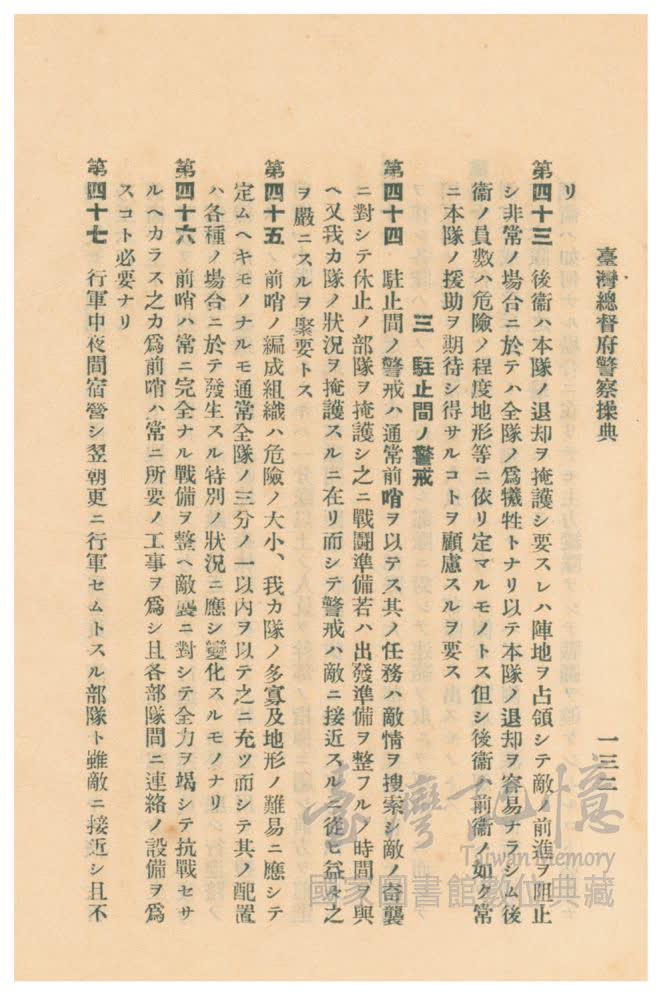 臺灣總督府警察操典
一三二
リ
第四十三 後衞ハ本隊ノ退却ヲ掩護シ要スレハ陣地ヲ占領シテ敵ノ前進ヲ阻止
シ非常ノ場合ニ於テハ全隊ノ爲犧牲トナリ以テ本隊ノ退却ヲ容易ナラシム後
衞ノ員數ハ危險ノ程度地形等ニ依リ定マルモノトス但シ後衞ハ前衞ノ如ク常
ニ本隊ノ援助ヲ期待シ得サルコトヲ顧慮スルヲ要ス
三 駐止間ノ警戒
第四十四 駐止間ノ警戒ハ通常前哨ヲ以テス其ノ任務ハ敵情ヲ搜索シ敵ノ奇襲
ニ對シテ休止ノ部隊ヲ掩護シ之ニ戰鬪準備若ハ出發準備ヲ整フルノ時間ヲ與
ヘ又我カ隊ノ狀況ヲ掩護スルニ在リ而シテ警戒ハ敵ニ接近スルニ從ヒ益々之
ヲ嚴ニスルヲ緊要トス
第四十五 前哨ノ編成組織ハ危險ノ大小、我カ隊ノ多寡及地形ノ難易ニ應シテ
定ムヘキモノナルモ通常全隊ノ三分ノ一以內ヲ以テ之ニ充ツ而シテ其ノ配置
ハ各種ノ場合ニ於テ發生スル特別ノ狀況ニ應シ變化スルモノナリ
第四十六 前哨ハ常ニ完全ナル戰備ヲ整ヘ敵襲ニ對シテ全力ヲ竭シテ抗戰セサ
ルヘカラス之カ爲前哨ハ常ニ所要ノ工事ヲ爲シ且各部隊間ニ連絡ノ設備ヲ爲
スコト必要ナリ
第四十七 行軍中夜間宿營シ翌朝更ニ行軍セムトスル部隊ト雖敵ニ接近シ且不
臺灣記憶
Taiwan Memory
國家圖書館數位典藏